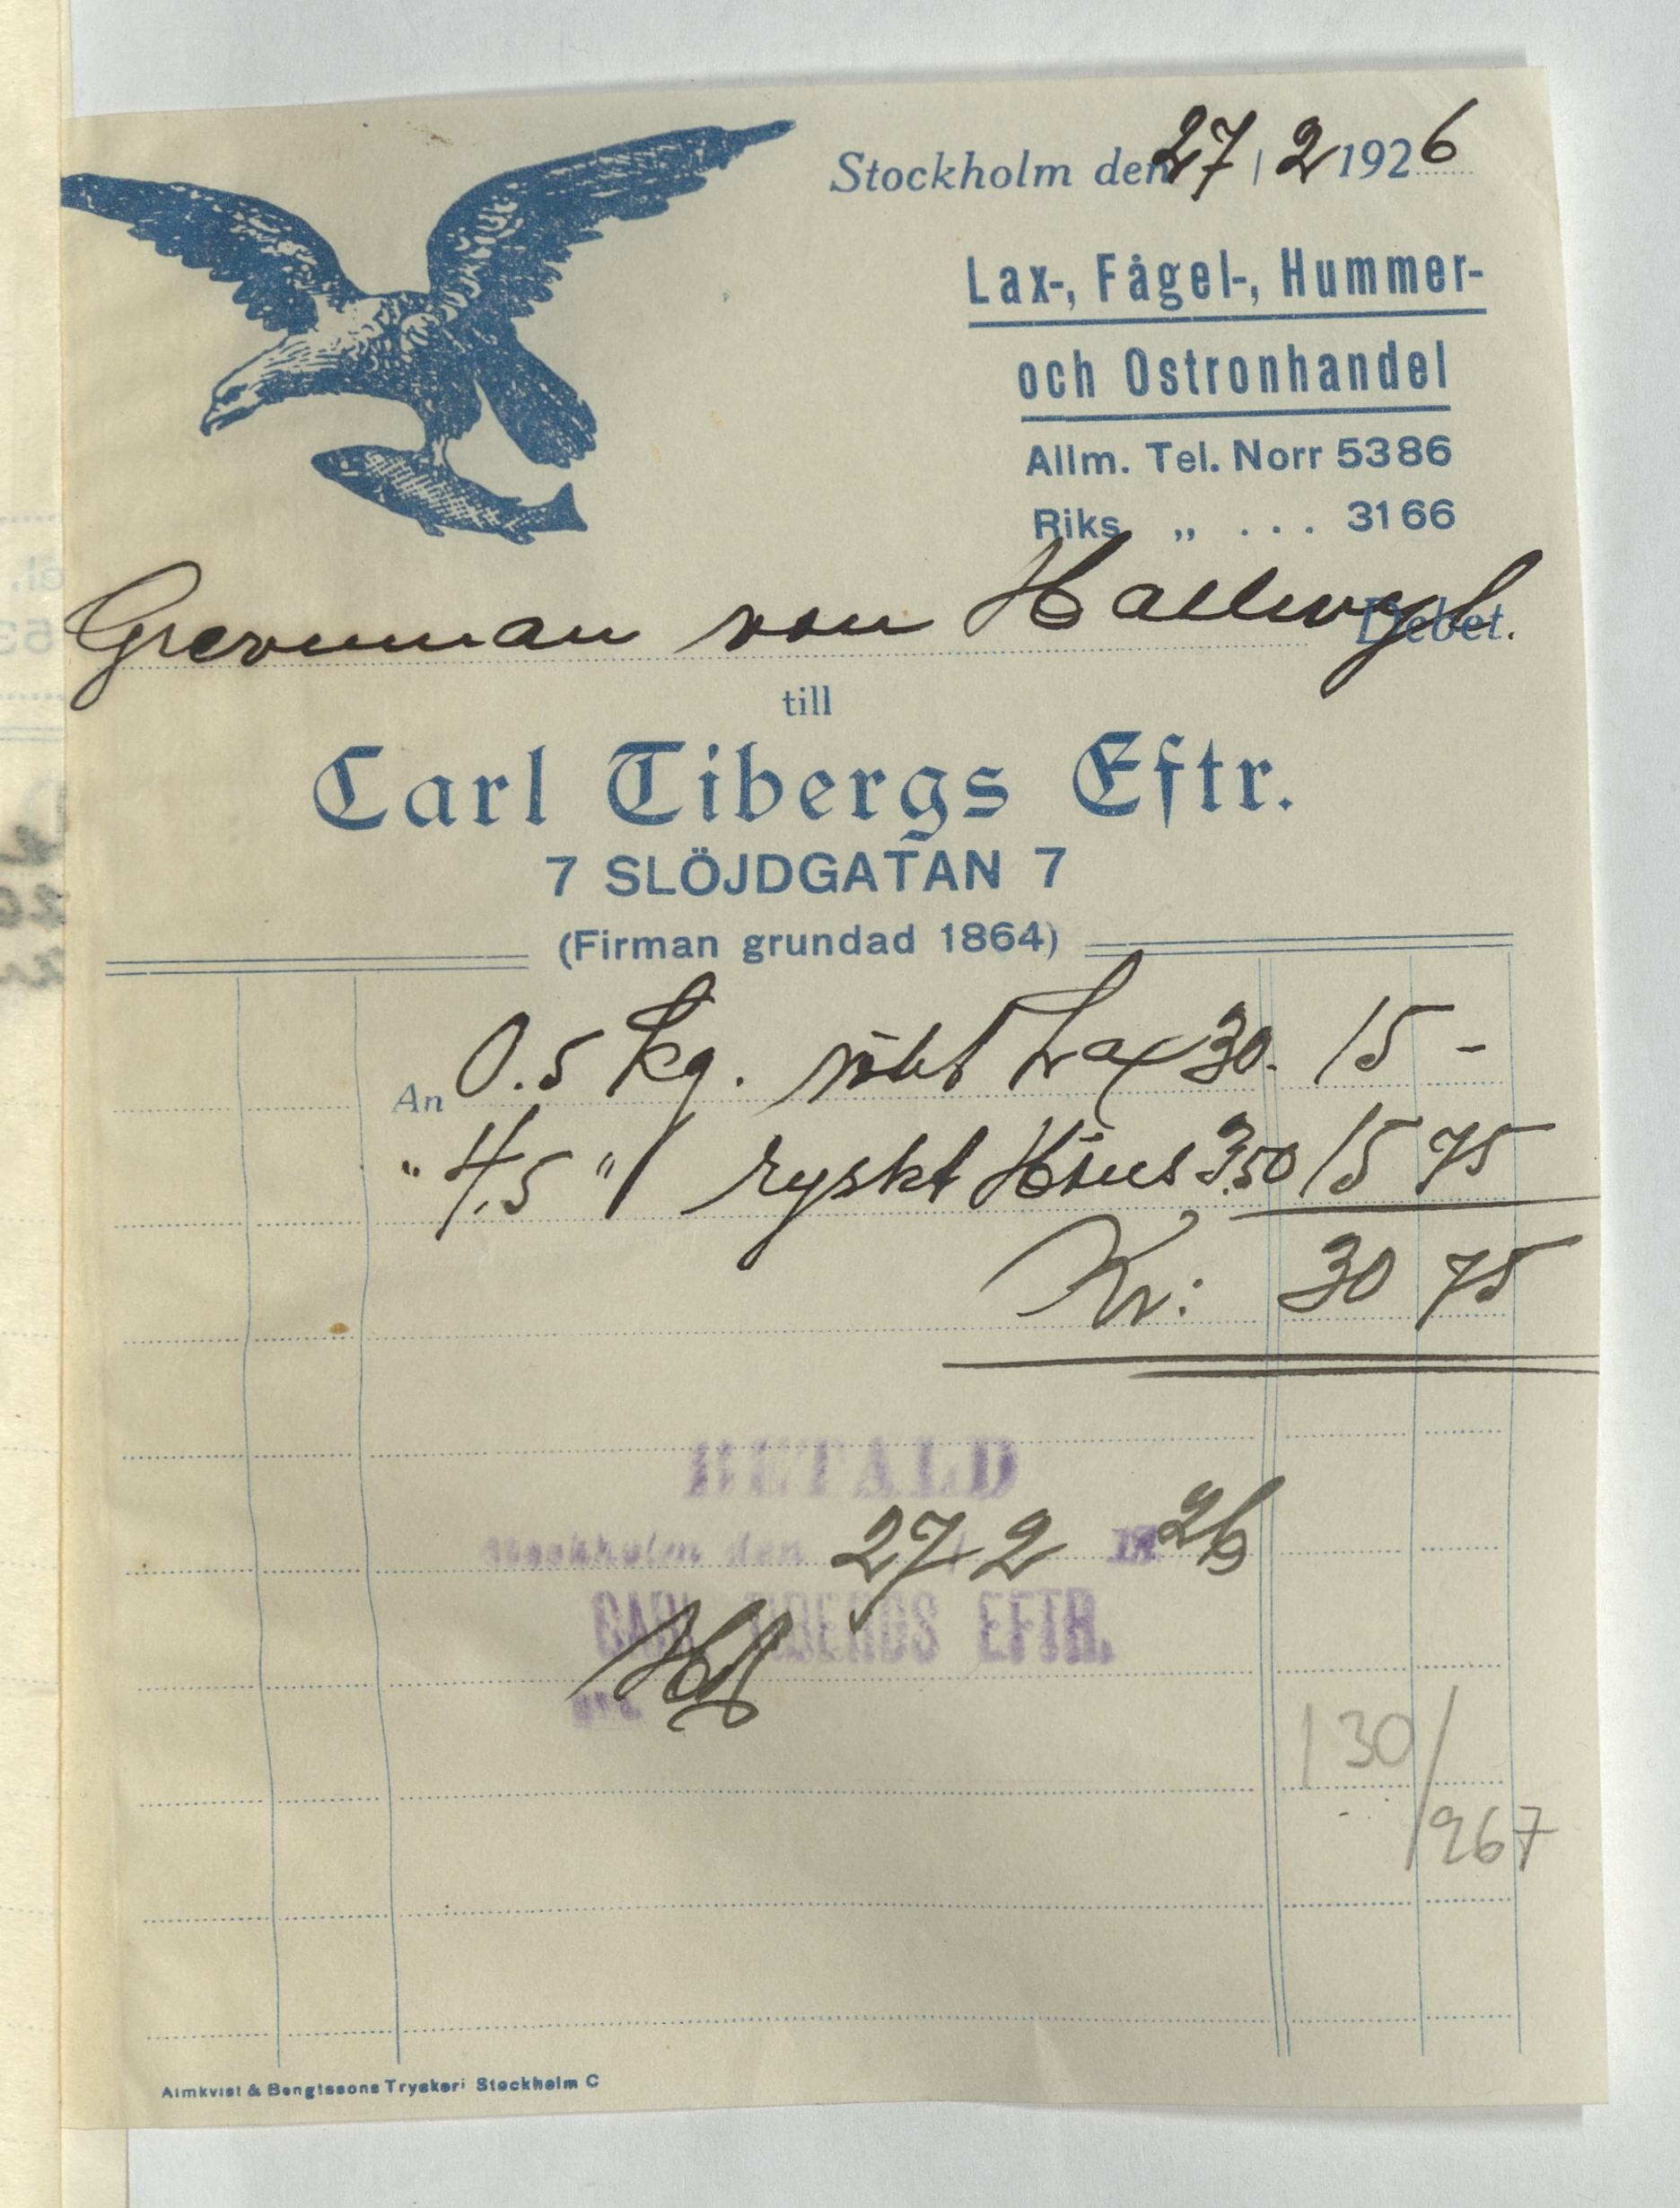 Stockholm den 27/2 1926
Lax-, Fågel-, Hummer-
och Ostronhandel
Allm. Tel. Norr 5386
Riks „ . . . 3166
Grevinnan von Hallwyl Debet.
till
Carl Tibergs Eftr.
7 SLÖJDGATAN 7
(Firman grundad 1864)
An 0.5 kg. rökt Lax 30. 15 -
" 4,5 " ryskt Höns 3.50 15 75
Kr: 30 75
BETALD
Stockholm den 27/2 1926
CARL TIBERGS EFTR.
130/
967
Almkvist & Bengtssons Tryckeri Stockholm C